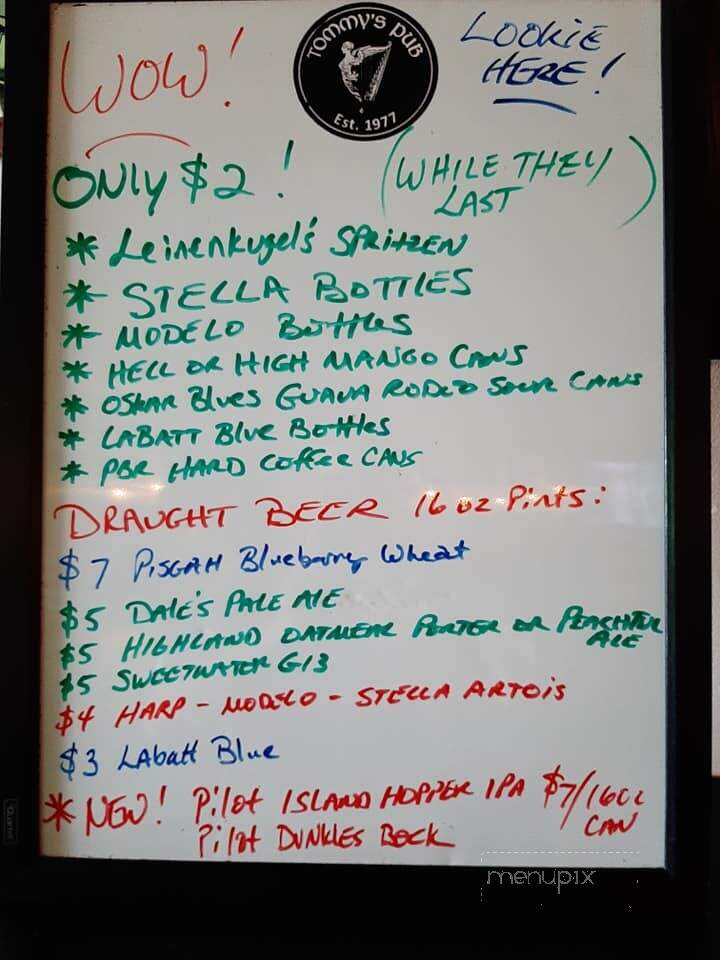 WOW!
TOMMY'S PUB
Est. 1977
LOOKIE
HERE!
ONLY $2!
(WHILE THEY
LAST)
* Leinenkugel's SPRITZEN
* STELLA BOTTLES
* MODELO BOTTLES
* HELL OR HIGH MANGO CANS
* OSKAR Blues GUAVA RODEO SOUR CANS
* LABATT Blue Bottles
* PBR HARD COFFEE CANS
DRAUGHT BEER 16 oz Pints:
$7 PISGAH Blueberry Wheat
$5 DALE'S PALE ALE
$5 HIGHLAND OATMEAL PORTER OR
ALE
$5 SWEETWATER G13
$4 HARP - MODELO - STELLA ARTOIS
$3 LAbatt Blue
* NEW! Pilot ISLAND HOPPER IPA $7/16oz
CAN
Pilot DUNKLES BOCK
menupix